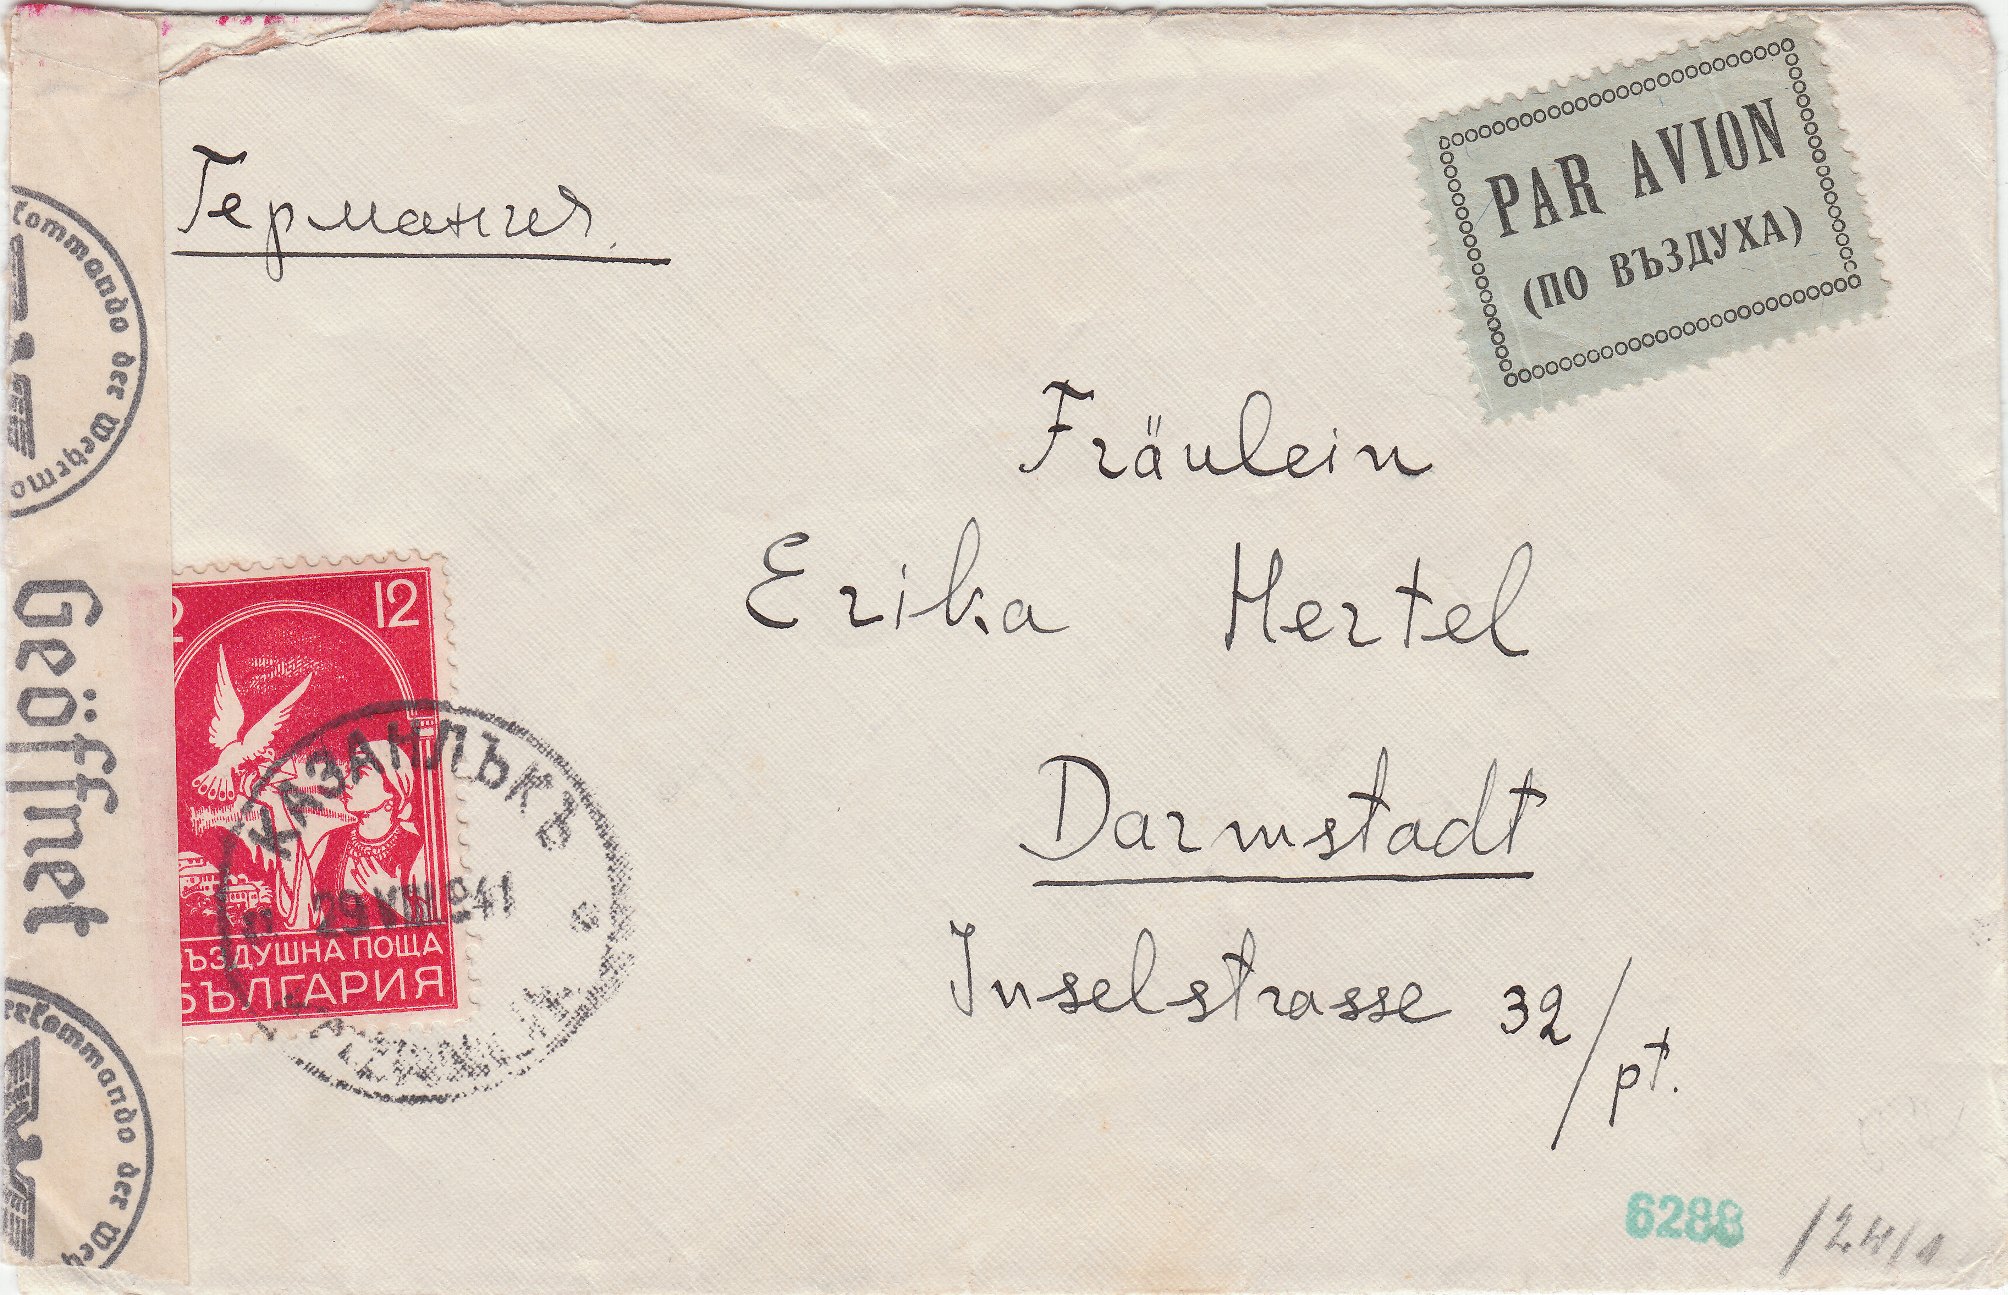 Германия.
PAR AVION
(ПО ВЪЗДУХА)
Fräulein
Erika Hertel
Darmstadt
Inselstrasse 32/pt.
commando der Wehrma
Geöffnet
commando der Weh
12
ЪЗДУШНА ПОЩА
БЪЛГАРИЯ
КАЗАНЛЪКЪ
29 VIII 941
6288